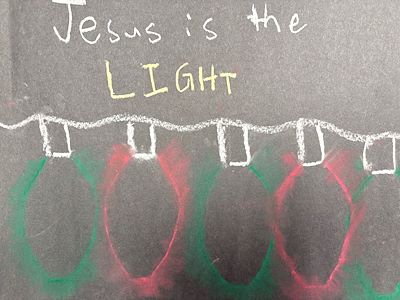 Jesus is the
LIGHT